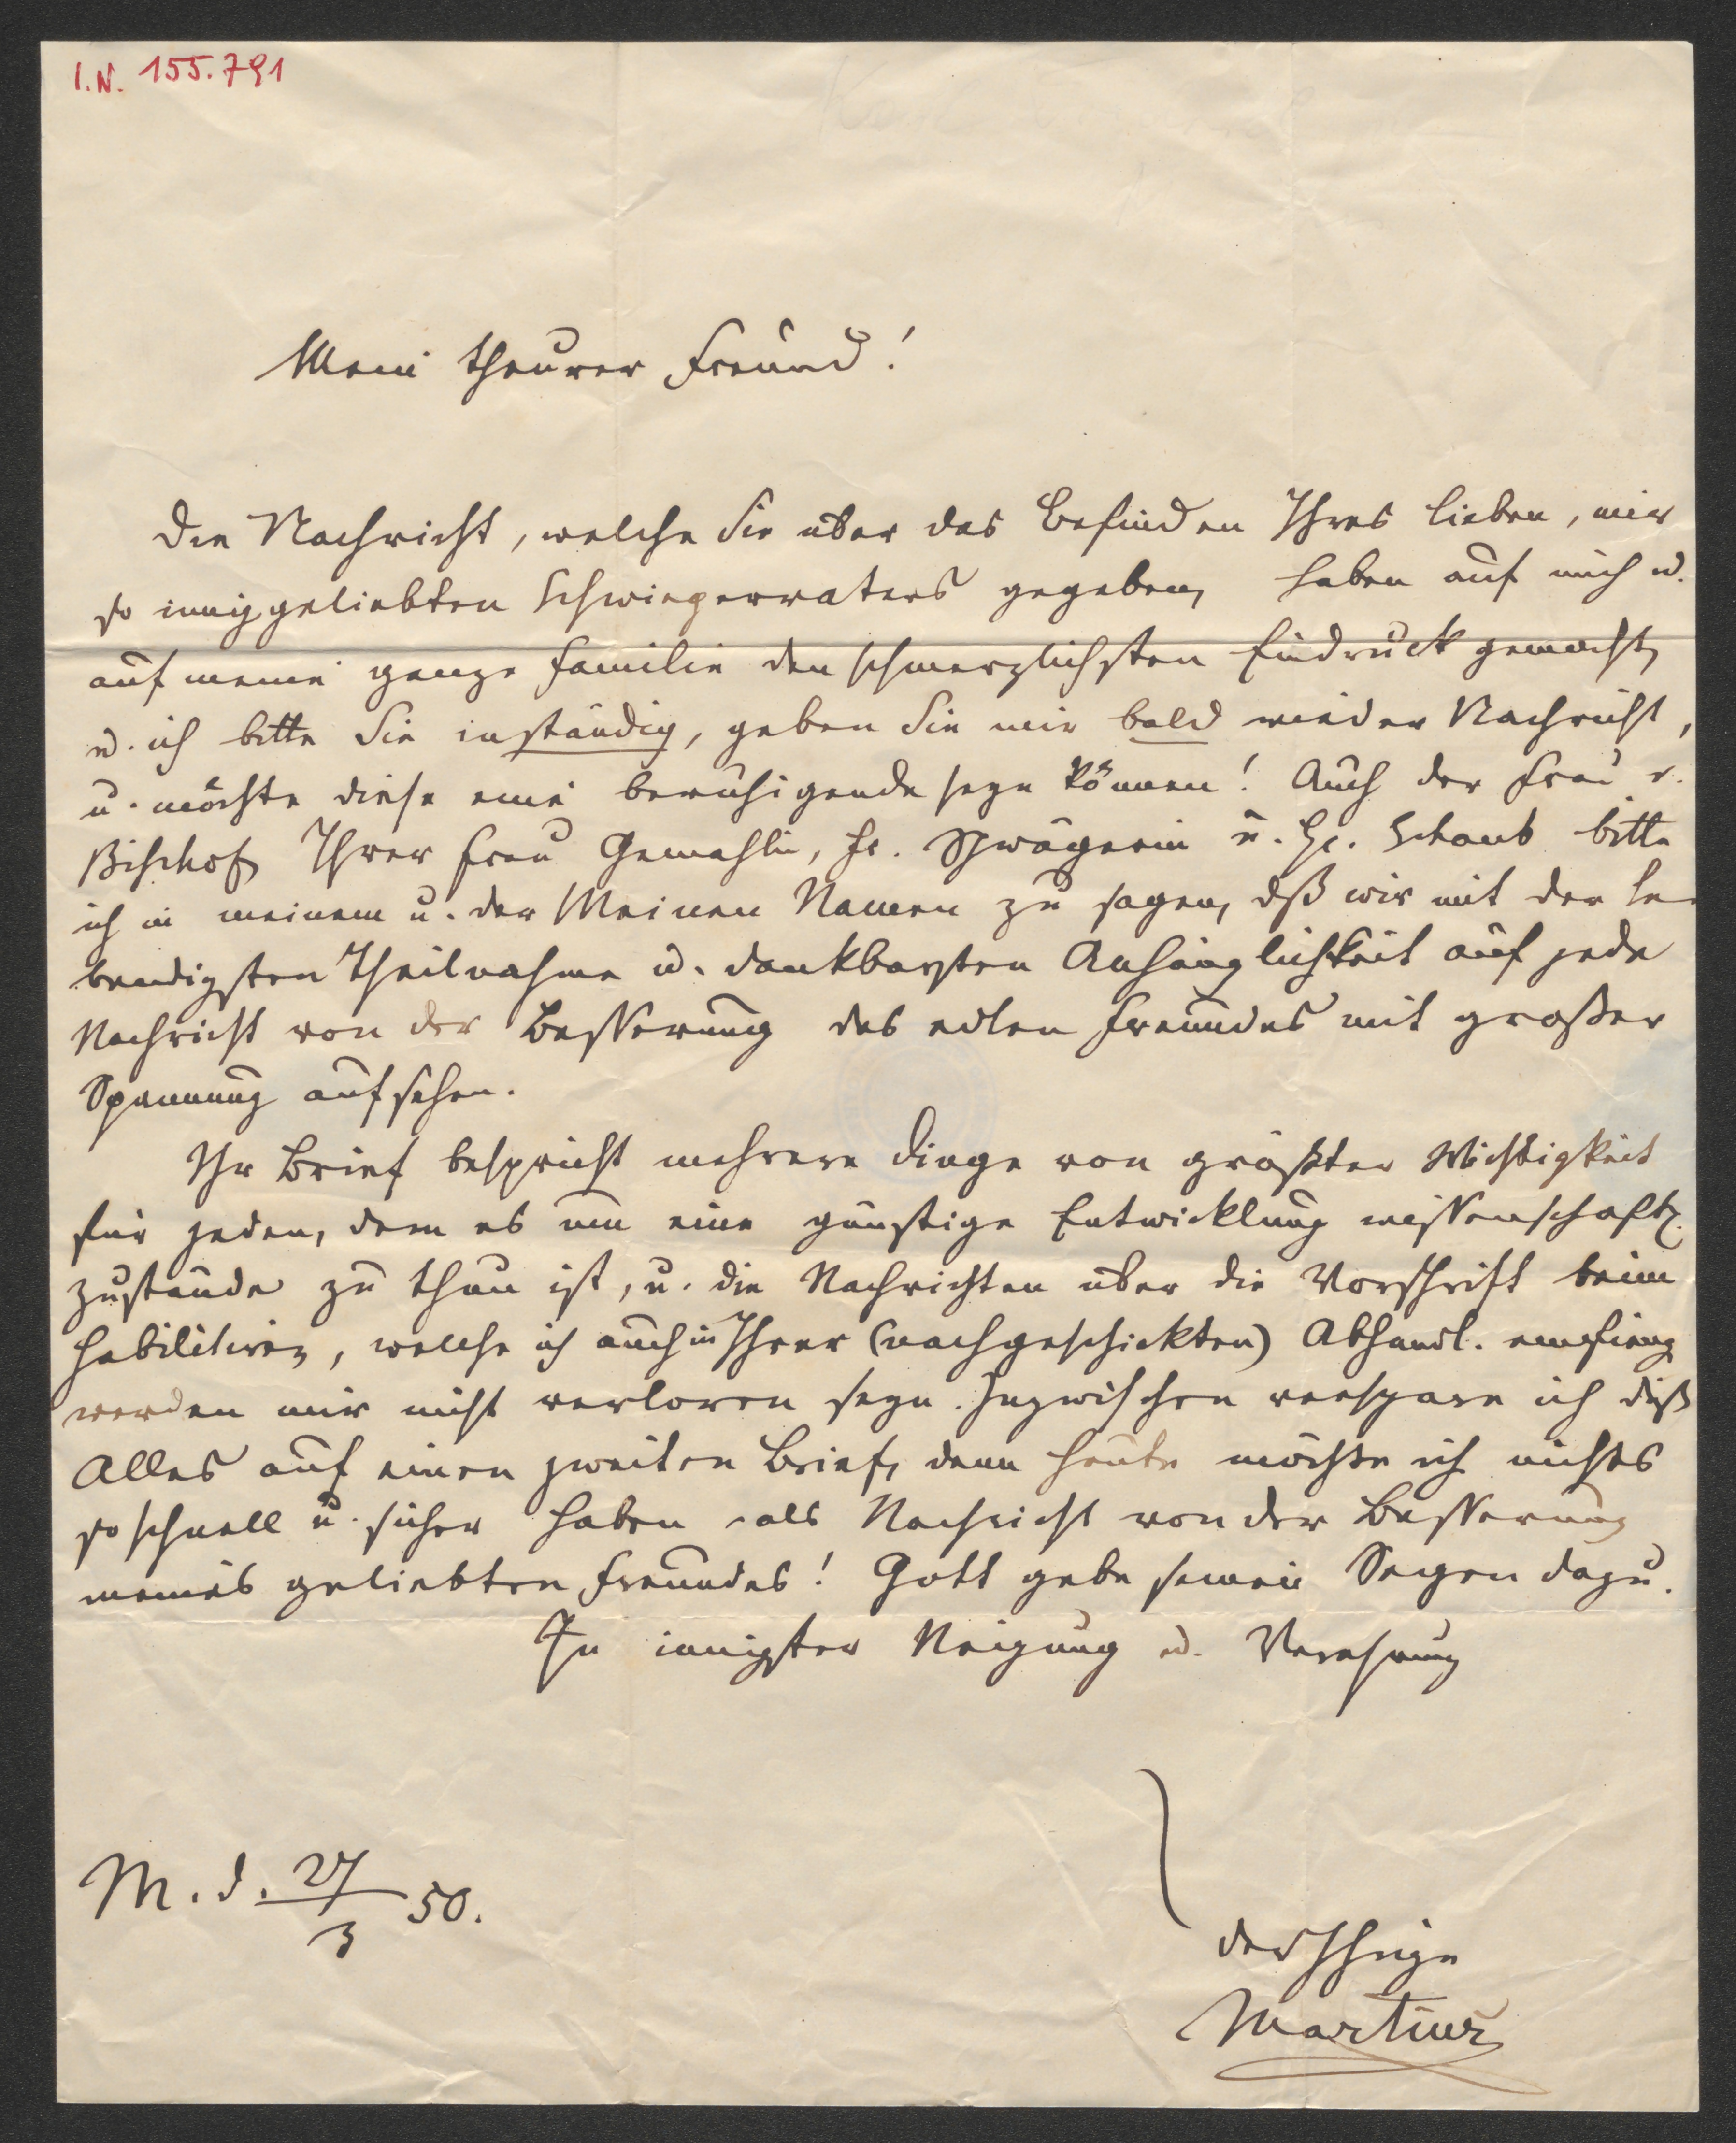 I.N. 155.791
Mein theurer Freund!
Die Nachricht, welche Sie über das Befinden Ihres lieben, mir
so innig geliebten Schwiegervaters gegeben, haben auf mich u.
auf meine ganze Familie den schmerzlichsten Eindruck gemacht,
u. ich bitte Sie inständig, geben Sie mir bald wieder Nachricht,
u. möchte diese eine beruhigende seyn können! Auch der Frau v.
Bischof, Ihrer Frau Gemahlin, Fr. Schwägerin u. H. Schaub bitte
ich in meinem u. der Meinen Namen zu sagen, dß wir mit der le-
bendigsten Theilnahme u. dankbarsten Anhänglichkeit auf jede
Nachricht von der Besserung des edlen Freundes mit großer
Spannung aufsehen.
Ihr Brief bespricht mehrere Dinge von größter Wichtigkeit
für jeden, dem es um eine günstige Entwicklung wissenschaftl.
Zustände zu thun ist, u. die Nachrichten über die Vorschrift beim
Habilitiren, welche ich auch in Ihrer (nachgeschickten) Abhandl. empfieng
werden mir nicht verloren seyn. Inzwischen verspare ich diß
Alles auf einen zweiten Brief, denn heute möchte ich nichts
so schnell u. sicher haben als Nachricht von der Besserung
meines geliebten Freundes! Gott gebe seinen Segen dazu.
In innigster Neigung u. Verehrung
M. d. 27/3 50.
der Ihrige
Martius